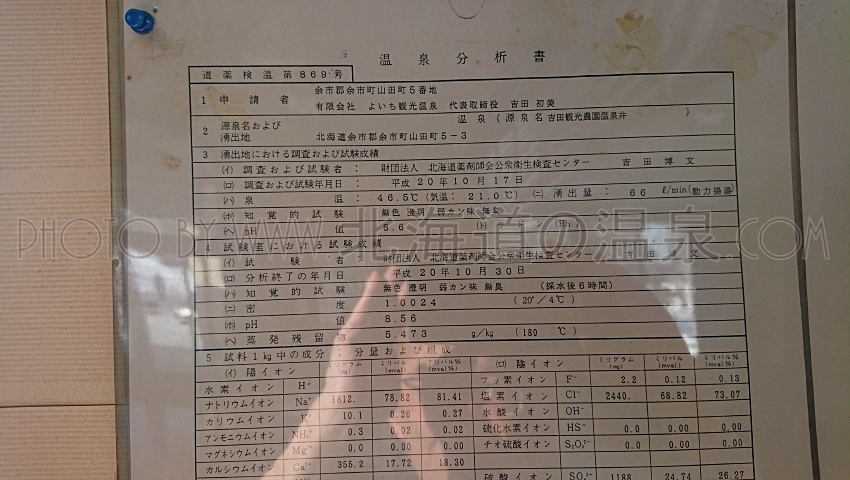 温泉分析書
道薬検温第869号
1 申請者 余市郡余市町山田町5番地
有限会社 よいち観光温泉 代表取締役 吉田 初美
2 源泉名および湧出地 温泉 (源泉名 吉田観光農園温泉井
北海道余市郡余市町山田町5-3
3 湧出地における調査および試験成績
(イ) 調査および試験者: 財団法人 北海道薬剤師会公衆衛生検査センター 吉田 博文
(ロ) 調査および試験年月日: 平成20年10月17日
(ハ) 泉温: 46.5℃(気温: 21.0℃) (ニ) 湧出量: 66 ℓ/min(動力揚湯)
(ホ) 知覚的試験 無色 澄明 弱カン味 無臭
(ヘ) pH値 5.6 (ト) ラドン (Rn)
4 試験室における試験成績
(イ) 試験者: 財団法人 北海道薬剤師会公衆衛生検査センター 博文
(ロ) 分析終了の年月日 平成20年10月30日
(ハ) 知覚的試験 無色 澄明 弱カン味 無臭 (採水後6時間)
(ニ) 密度 1.0024 (20°/4℃)
(ホ) pH値 8.56
(ヘ) 蒸発残留物 5.473 g/kg (180 ℃)
5 試料1kg中の成分: 分量および組成
(イ) 陽イオン ミリグラム(mg) ミリバル(mval) ミリバル%(mval%) (ロ) 陰イオン ミリグラム(mg) ミリバル(mval) ミリバル%(mval%)
水素イオン H⁺ フッ素イオン F⁻ 2.2 0.12 0.13
ナトリウムイオン Na⁺ 1812. 78.82 81.41 塩素イオン Cl⁻ 2440. 68.82 73.07
カリウムイオン K⁺ 10.1 0.26 0.27 水酸イオン OH⁻
アンモニウムイオン NH₄⁺ 0.3 0.02 0.02 硫化水素イオン HS⁻ 0.0 0.00 0.00
マグネシウムイオン Mg²⁺ 0.0 0.00 0.00 チオ硫酸イオン S₂O₃²⁻ 0.0 0.00 0.00
カルシウムイオン Ca²⁺ 355.2 17.72 18.30
硫酸イオン SO₄²⁻ 1188 24.74 26.27
PHOTO BY WWW.北海道の温泉.COM